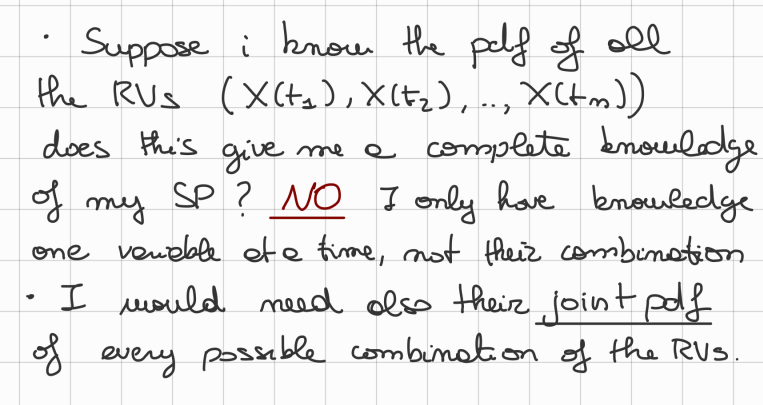 · Suppose i know the pdf of all
the RVs (X(t₁), X(t₂), .., X(tₙ))
does this give me a complete knowledge
of my SP? NO I only have knowledge
one variable at a time, not their combination
· I would need also their joint pdf
of every possible combination of the RVs.